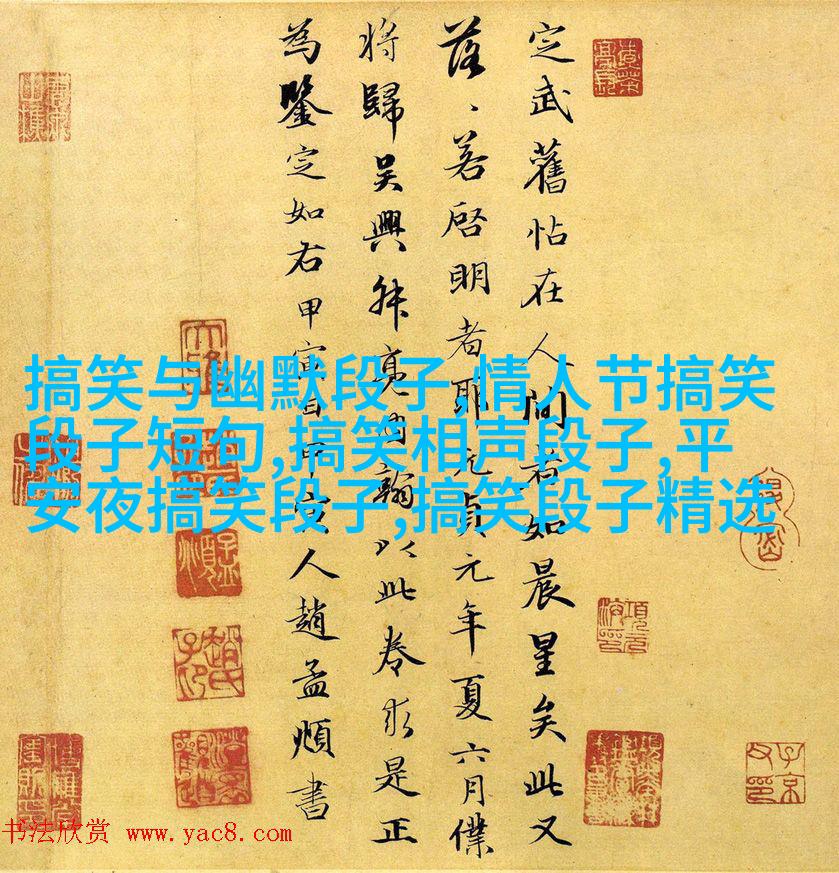 搞笑与幽默段子,情人节搞笑
段子短句,搞笑相声段子,平
安夜搞笑段子,搞笑段子精选
定武舊帖在人間者如晨星矣此又
落、若啓明者耶元貞元年夏六月僕
将歸吴興叔亮内翰以此卷求是正
為鑒定如右甲寅日甲寅人趙孟頫書
书法欣赏 www.yac8.com